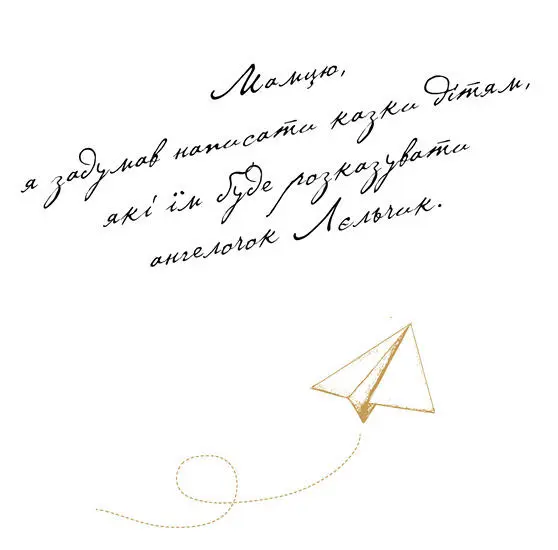 Мамцю,
я задумав написати казки дітям,
які їм буде розказувати
ангелочок Лєльчик.